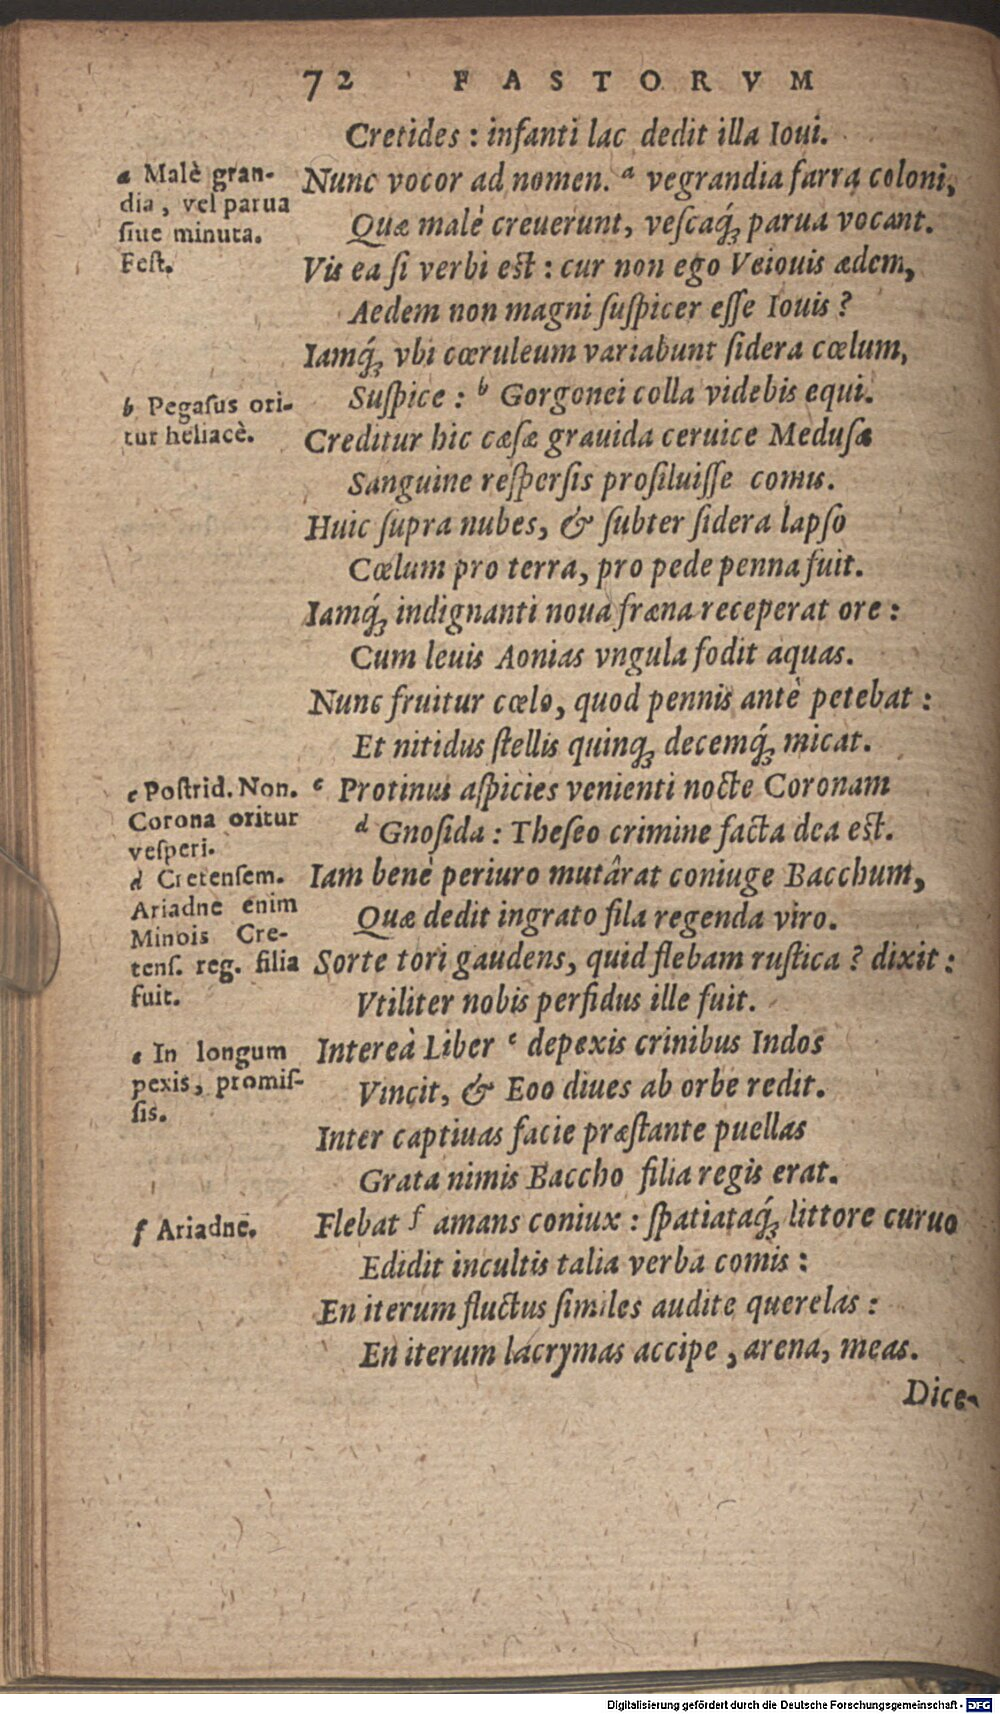 72 FASTORVM
Cretides : infanti lac dedit illa Ioui.
Nunc vocor ad nomen. ᵃ vegrandia farra coloni,
Quæ malè creuerunt, veſcaq́ꝫ parua vocant.
Vis ea ſi verbi est : cur non ego Veiouis ædem,
Aedem non magni ſuſpicer eſſe Iouis ?
Iamq́ꝫ vbi cœruleum variabunt ſidera cœlum,
Suſpice : ᵇ Gorgonei colla videbis equi.
Creditur hic cæſæ grauida ceruice Meduſæ
Sanguine reſperſis proſiluiſſe comis.
Huic ſupra nubes, & ſubter ſidera lapſo
Cœlum pro terra, pro pede penna fuit.
Iamq́ꝫ indignanti noua fræna receperat ore :
Cum leuis Aonias vngula fodit aquas.
Nunc fruitur cœlo, quod pennis antè petebat :
Et nitidus ſtellis quinqꝫ decemq́ꝫ micat.
ᶜ Protinus aſpicies venienti nocte Coronam
ᵈ Gnoſida : Theſeo crimine facta dea eſt.
Iam benè periuro mutârat coniuge Bacchum,
Quæ dedit ingrato fila regenda viro.
Sorte tori gaudens, quid flebam ruſtica ? dixit :
Vtiliter nobis perfidus ille fuit.
Intereà Liber ᵉ depexis crinibus Indos
Vincit, & Eoo diues ab orbe redit.
Inter captiuas facie præſtante puellas
Grata nimis Baccho filia regis erat.
Flebat ᶠ amans coniux : ſpatiataq́ꝫ littore curuo
Edidit incultis talia verba comis :
En iterum fluctus ſimiles audite querelas :
En iterum lacrymas accipe, arena, meas.
Dice-
a Malè gran-
dia, vel parua
ſiue minuta.
Feſt.
b Pegaſus ori-
tur heliacè.
c Poſtrid. Non.
Corona oritur
veſperi.
d Cretenſem.
Ariadne enim
Minois Cre-
tenſ. reg. filia
fuit.
e In longum
pexis, promiſ-
ſis.
f Ariadne.
Digitalisierung gefördert durch die Deutsche Forschungsgemeinschaft - DFG